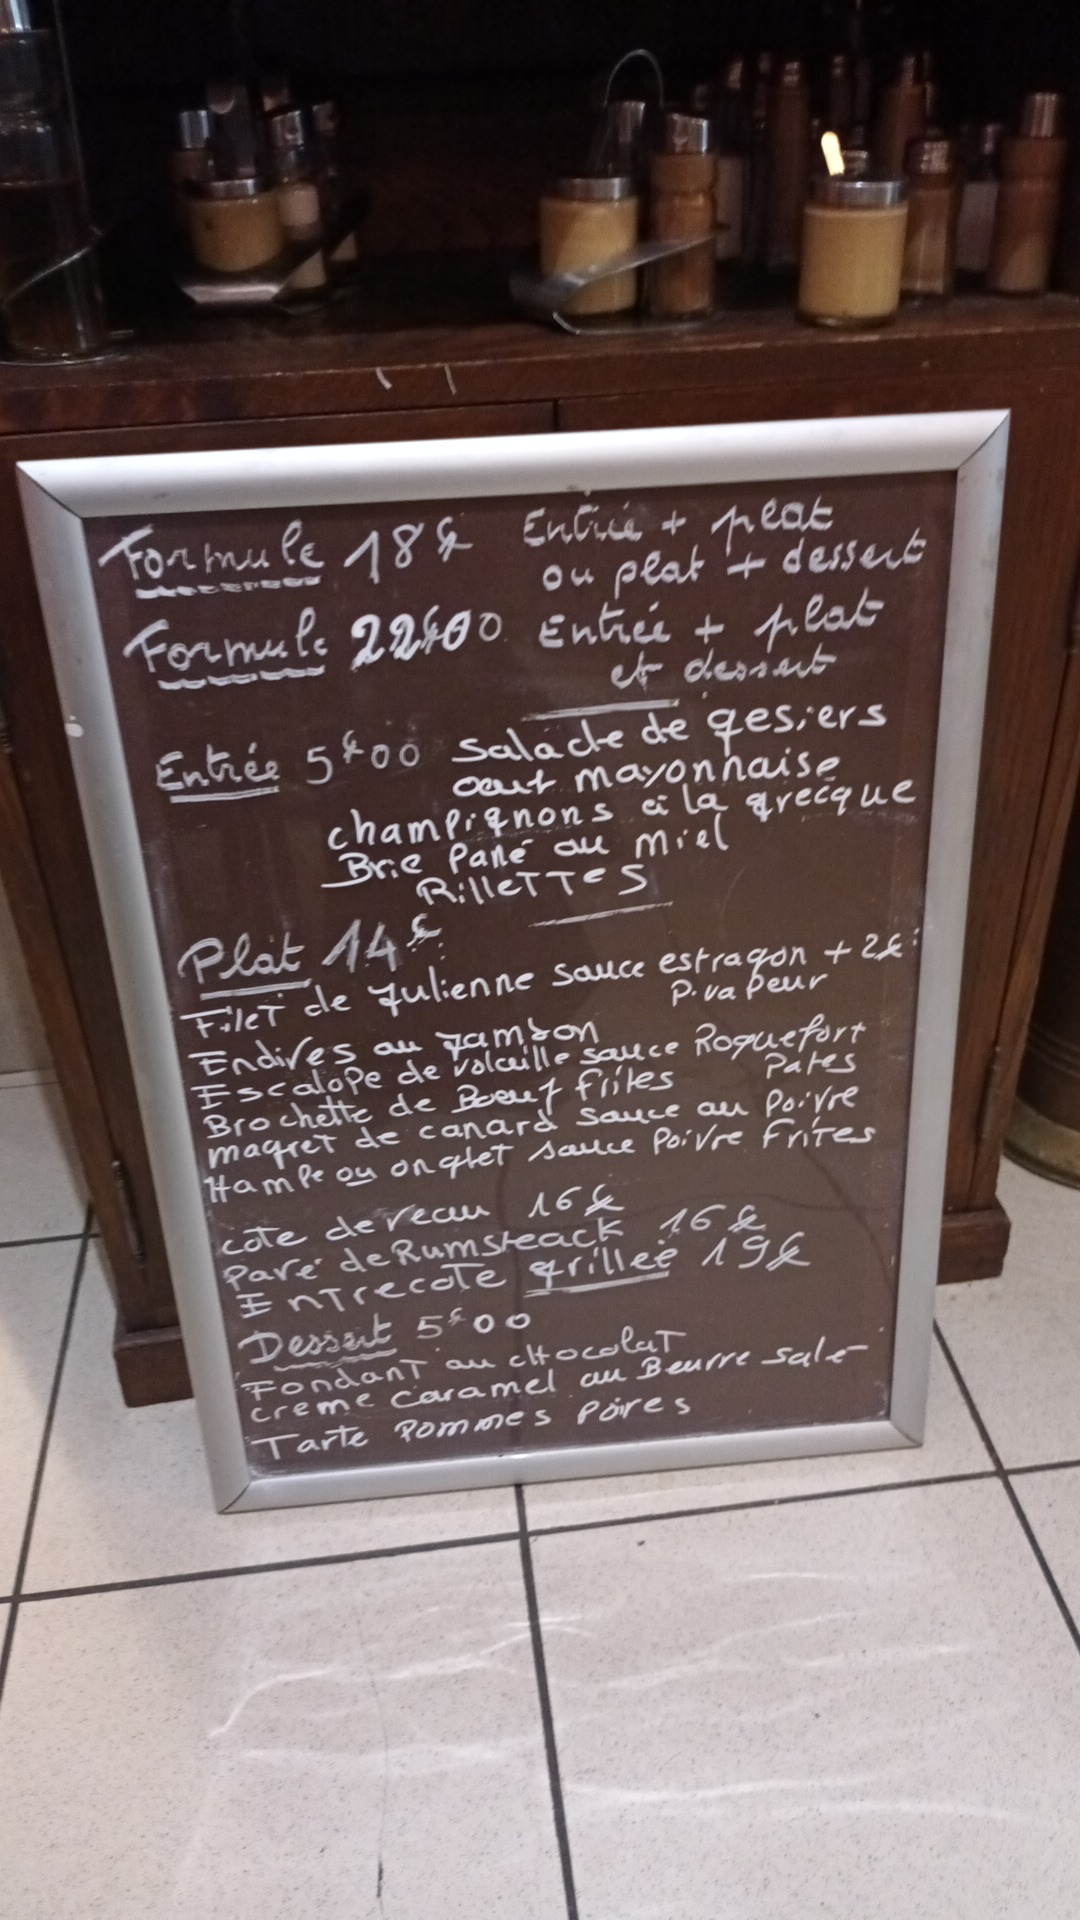 Formule 18€ Entrée + plat
ou plat + dessert
Formule 22€00 Entrée + plat
et dessert
Entrée 5€00 Salade de gesiers
oeuf mayonnaise
champignons à la grecque
Brie Pané au Miel
RilleTTeS
Plat 14€
FileT de Julienne sauce estragon + 2€
P. vaPeur
Endives au Jambon
Escalope de volaille sauce Roquefort
Pates
Brochette de Boeuf frites
magret de canard sauce au Poivre
Hampe ou onglet sauce Poivre Frites
cote de veau 16€
Pavé de Rumsteack 16€
EnTrecote grillee 19€
Dessert 5€00
FondanT au cHocolaT
creme caramel au Beurre salé
Tarte Pommes Poires